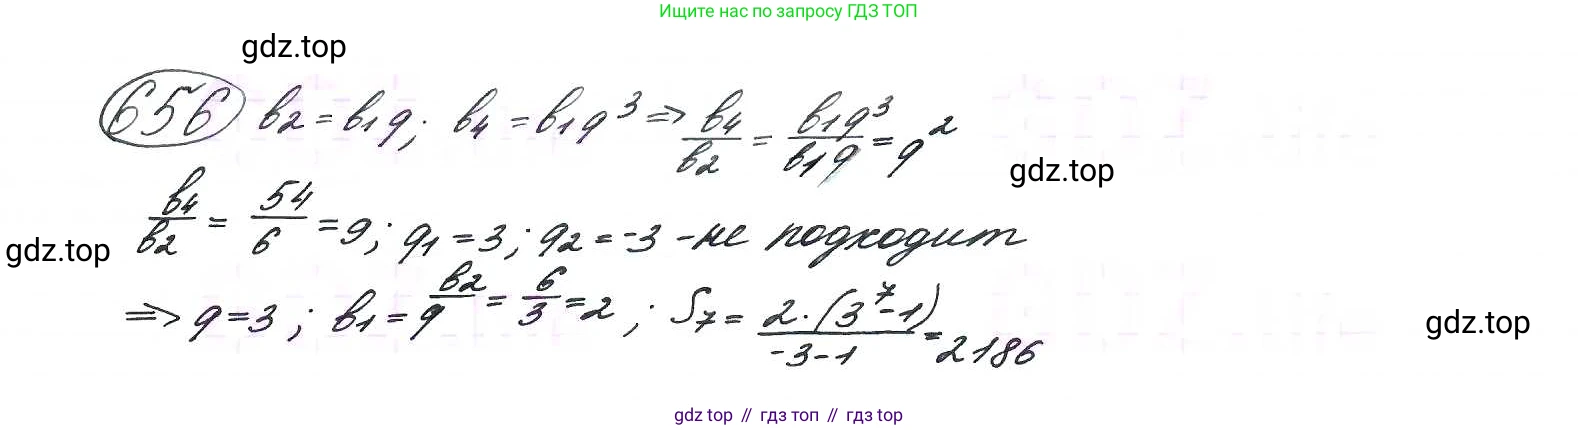 Ищите нас по запросу ГДЗ ТОП
gdz.top
656 b2 = b1q; b4 = b1q^3 => b4/b2 = b1q^3/b1q = q^2
gdz.top
b4/b2 = 54/6 = 9; q1 = 3; q2 = -3 - не подходит
gdz.top
=> q = 3; b1 = b2/q = 6/3 = 2; S7 = 2·(3^7-1)/-3-1 = 2186
gdz.top
gdz top // гдз топ // гдз top